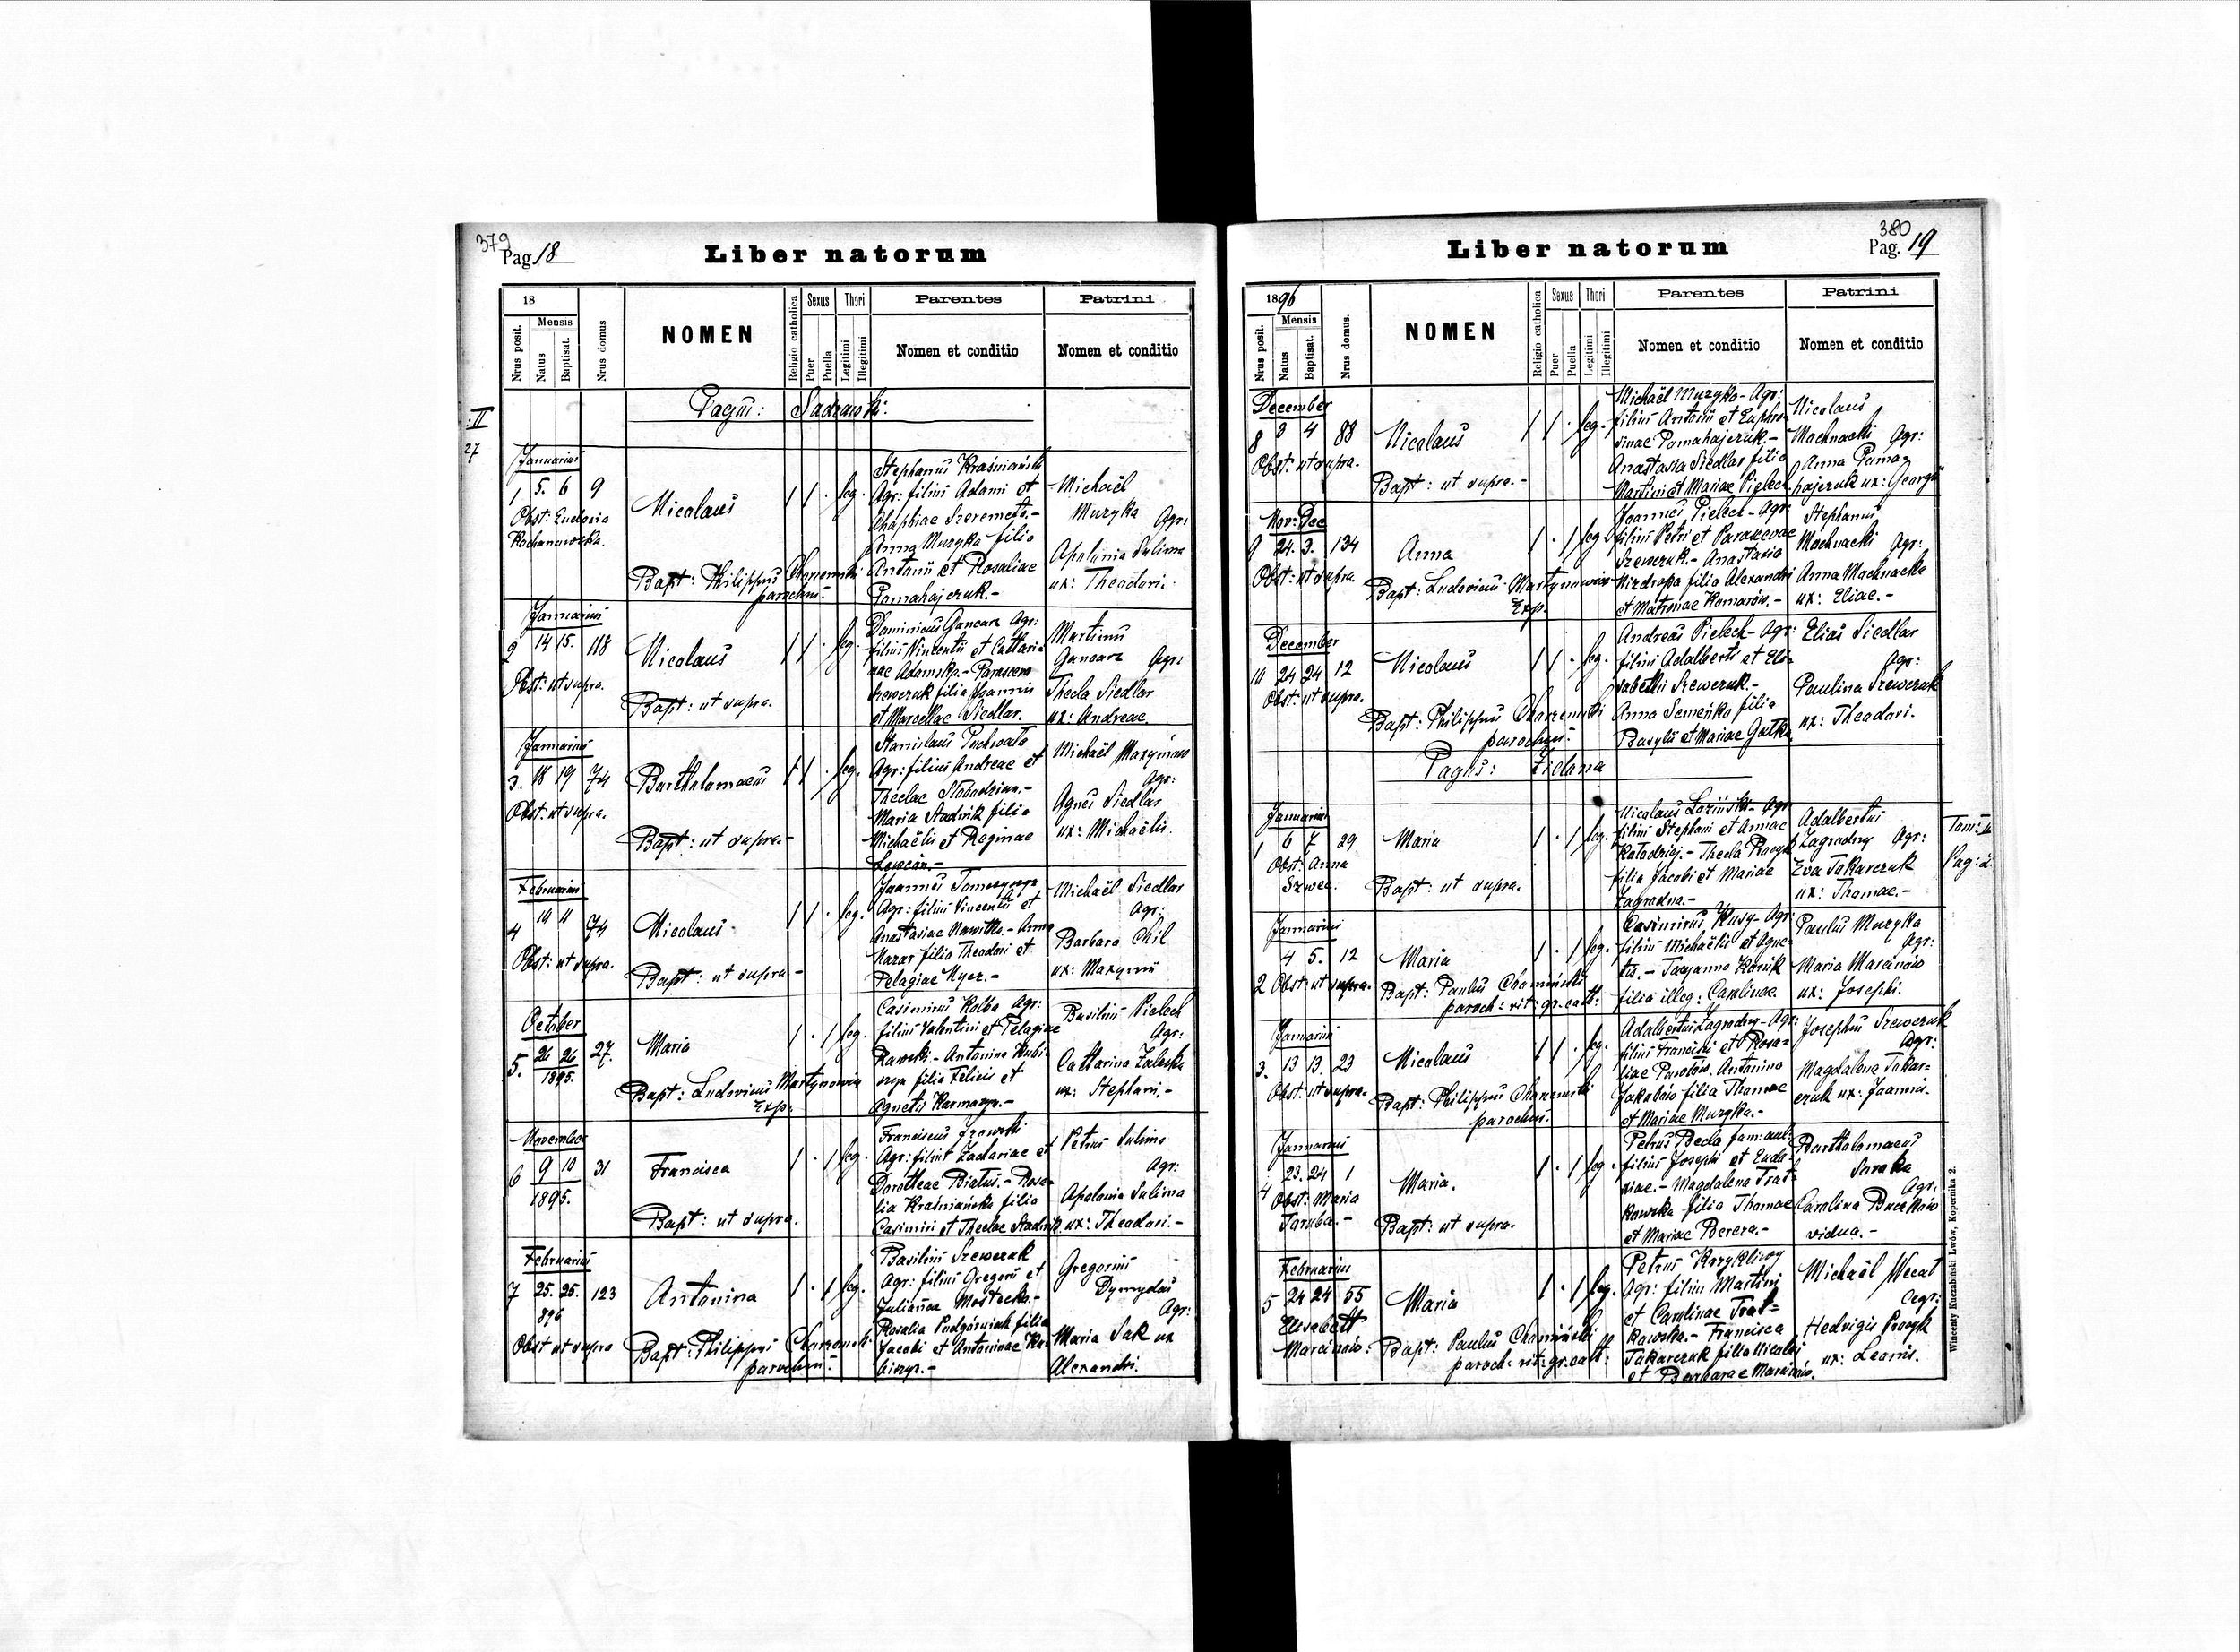 379
Pag. 18
Liber natorum
18
Mensis
Nrus posit.
Natus
Baptisat.
Nrus domus
NOMEN
Religio catholica
Sexus
Puer
Puella
Thori
Legitimi
Illegitimi
Parentes
Nomen et conditio
Patrini
Nomen et conditio
Pagus: Sadzawki:
:II
27
Januarius
1 5. 6 9
Obst: Eudoxia
Kochanowska.
Nicolaus
1 1 . leg.
Bapt: Philippus Charzewski
parochus.
Stephanus Kraśniański
Agr: filius Adami et
Ahaphiae Szeremeta.-
Anna Muzyka filia
Antonii et Rosaliae
Pomahajczuk.-
Michaël
Muzyka Agr:
Apolonia Sulima
ux: Theodori.
Januarius
2 14 15. 118
Obst: ut supra.
Nicolaus
1 1 . leg.
Bapt: ut supra.
Dominicus Gancarz Agr:
filius Vincentii et Cathari-
nae Adamska.- Parasceva
Szewczuk filia Joannis
et Marcellae Siedlar.
Martinus
Gancarz Agr:
Thecla Siedlar
ux: Andreae.
Januarius
3. 18 19 74
Obst: ut supra.
Bartholomaeus
1 1 . leg.
Bapt: ut supra.-
Stanislaus
Agr: filius Andreae et
Theclae Słobodzian.-
Maria Stadnik filia
Michaëlis et Reginae
Michaël Maxymów
Agr:
Agnes Siedlar
ux: Michaëlis.
Februarius
4 10 11 74
Obst: ut supra.
Nicolaus
1 1 . leg.
Bapt: ut supra-
Joannes
Agr: filius Vincentii et
Anastasiae Nawitka.- Anna
Nazar filia Theodori et
Pelagiae Nycz.-
Michaël Siedlar
Agr:
Barbara Chil
ux: Maxymii
October
5. 26 26 27.
1895.
Maria
1 . 1 leg.
Bapt: Ludovicus Martynowicz
Exp.
Casimirus Kolba Agr:
filius Valentini et Pelagiae
Rawski.- Antonina
filia Felicis et
Agnetis
Basilius Pielech
Agr:
Catharina Zaleska
ux: Stephani.-
November
6 9 10 31
1895.
Francisca
1 . 1 leg.
Bapt: ut supra.
Franciscus
Agr: filius Zachariae et
Dorotheae Białuś.- Rosa-
lia Kraśniańska filia
Casimiri et Theclae Stadnik
Petrus Sulima
Agr:
Apolonia Sulima
ux: Theodori.-
Februarius
7 25. 25. 123
896
Obst ut supra
Antonina
1 . 1 leg.
Bapt: Philippus Charzewski
parochus.
Basilius Szewczuk
Agr: filius Gregorii et
Julianae Mostecka.-
Rosalia Podgórniak filia
Jacobi et Antoninae
Gregorius
Agr:
Maria Sak ux
Alexandri.
380
Pag. 19
Liber natorum
1896
Mensis
Nrus posit.
Natus
Baptisat.
Nrus domus.
NOMEN
Religio catholica
Sexus
Puer
Puella
Thori
Legitimi
Illegitimi
Parentes
Nomen et conditio
Patrini
Nomen et conditio
December
8 3 4 88
Obst: ut supra.
Nicolaus
1 1 . leg.
Bapt: ut supra.-
Michaël Muzyka- Agr:
filius Antonii et Euphro-
sinae Pomahajczuk.-
Anastasia Siedlar filia
Martini et Mariae Pielech.
Nicolaus
Machnacki Agr:
Anna Poma-
hajczuk ux: Georgii
Nov: Dec
9 24. 3. 134
Obst: ut supra.
Anna
1 . 1 leg
Bapt: Ludovicus Martynowicz
Exp.
Joannes Pielech- Agr:
filius Petri et Parascevae
Szewczuk.- Anastasia
Mizdropa filia Alexandri
et Matronae Komarów.-
Stephanus
Machnacki Agr:
Anna Machnacka
ux: Eliae.-
December
10 24 24 12
Obst: ut supra.
Nicolaus
1 1 . leg.
Bapt: Philippus Charzewski
parochus.
Andreas Pielech- Agr:
filius Adalberti et Eli-
sabethis Szewczuk.-
Anna Semeńka filia
Basylii et Mariae Gatka
Elias Siedlar
Agr:
Paulina Szewczuk
ux: Theodori.
Pagus: Zielona
Januarius
1 6 7 29
Obst: Anna
Szwec.
Maria
1 . 1 leg.
Bapt: ut supra.
Nicolaus Loziński- Agr
filius Stephani et Annae
Kołodziej.- Thecla Procyk
filia Jacobi et Mariae
Zagrodna.-
Adalbertus
Zagrodny Agr:
Eva Tokarczuk
ux: Thomae.-
Tom:
Pag:
Januarius
2 4 5. 12
Obst: ut supra.
Maria
1 . 1 leg.
Bapt: Paulus Chomiński
paroch: rit: gr. cath:
Casimirus Kusy- Agr:
filius Michaëlis et Agne-
tis.- Tacyanna Kosiuk
filia illeg: Carolinae.
Paulus Muzyka
Agr:
Maria Marcinów
ux: Josephi.
Januarius
3. 13 13. 23
Obst: ut supra.
Nicolaus
1 1 . leg.
Bapt: Philippus Charzewski
parochus.
Adalbertus Zagrodny- Agr:
filius Francisci et Rosa-
liae Pawłów. Antonina
Jakubów filia Thomae
et Mariae Muzyka.-
Josephus Szewczuk
Agr:
Magdalena Tokar-
czuk ux: Joannis.
Januarius
4 23. 24 1
Obst: Maria
Taraba.-
Maria.
1 . 1 leg
Bapt: ut supra.
Petrus Becla fam: aul:
filius Josephi et Eudo-
xiae.- Magdalena Trat-
kowska filia Thomae
et Mariae Bereza.-
Bartholomaeus
Soroka
Agr.
Carolina Buczków
vidua.-
Februarius
5 24 24 55
Elisabeth
Marcinów:
Maria
1 . 1 leg.
Bapt: Paulus Chomiński
paroch: rit: gr. cath:
Petrus Krzykliwy
Agr: filius Martini
et Carolinae Trat-
kowska.- Francisca
Tokarczuk filia Nicolai
et Barbarae Marcinów.
Michaël Wecał
Agr:
Hedvigis Procyk
ux: Leonis.
Wincenty Kuczabiński Lwów, Kopernika 2.